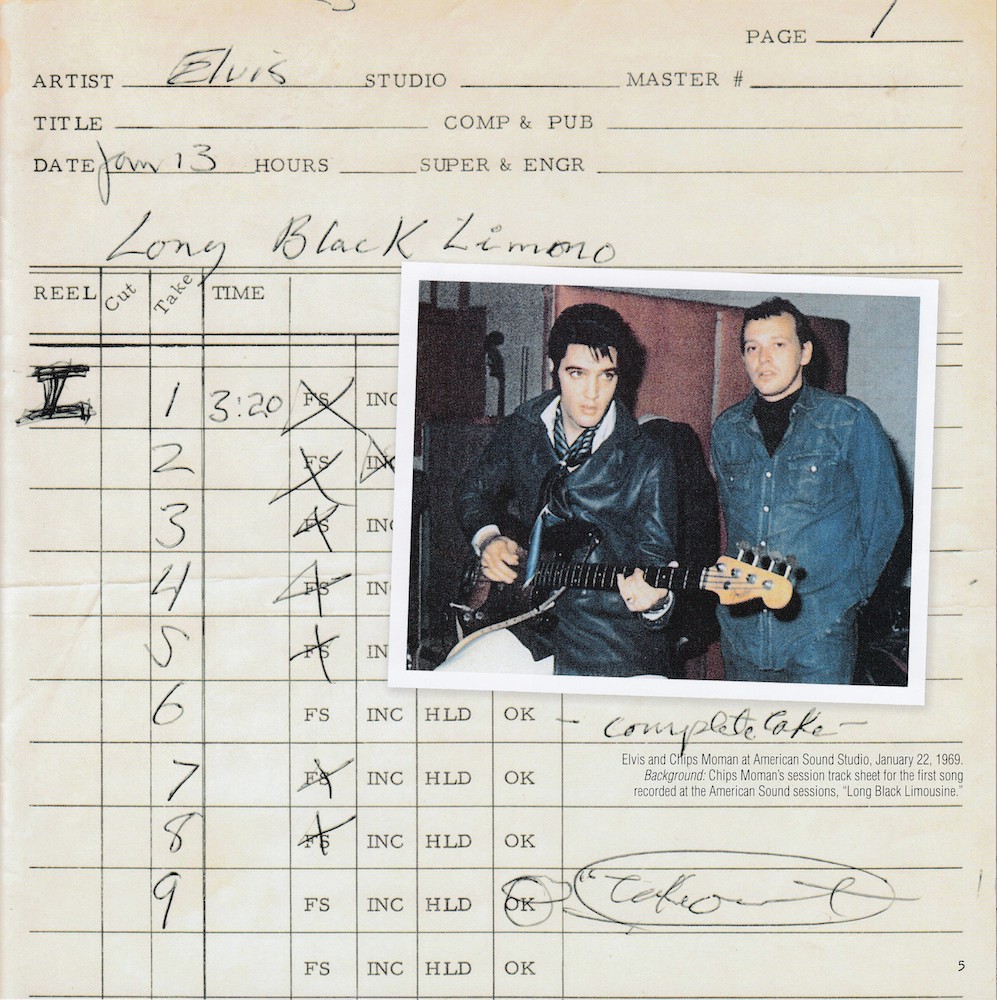 PAGE 1
ARTIST Elvis STUDIO MASTER #
TITLE COMP & PUB
DATE Jan 13 HOURS SUPER & ENGR
Long Black Limono
REEL Cut Take TIME
I 1 3:20 FS INC
2 FS INC
3 FS INC
4 FS IN
5 FS IN
6 FS INC HLD OK - complete take -
Elvis and Chips Moman at American Sound Studio, January 22, 1969.
Background: Chips Moman's session track sheet for the first song
recorded at the American Sound sessions, “Long Black Limousine.”
7 FS INC HLD OK
8 FS INC HLD OK
9 FS INC HLD OK "takeout
FS INC HLD OK
5